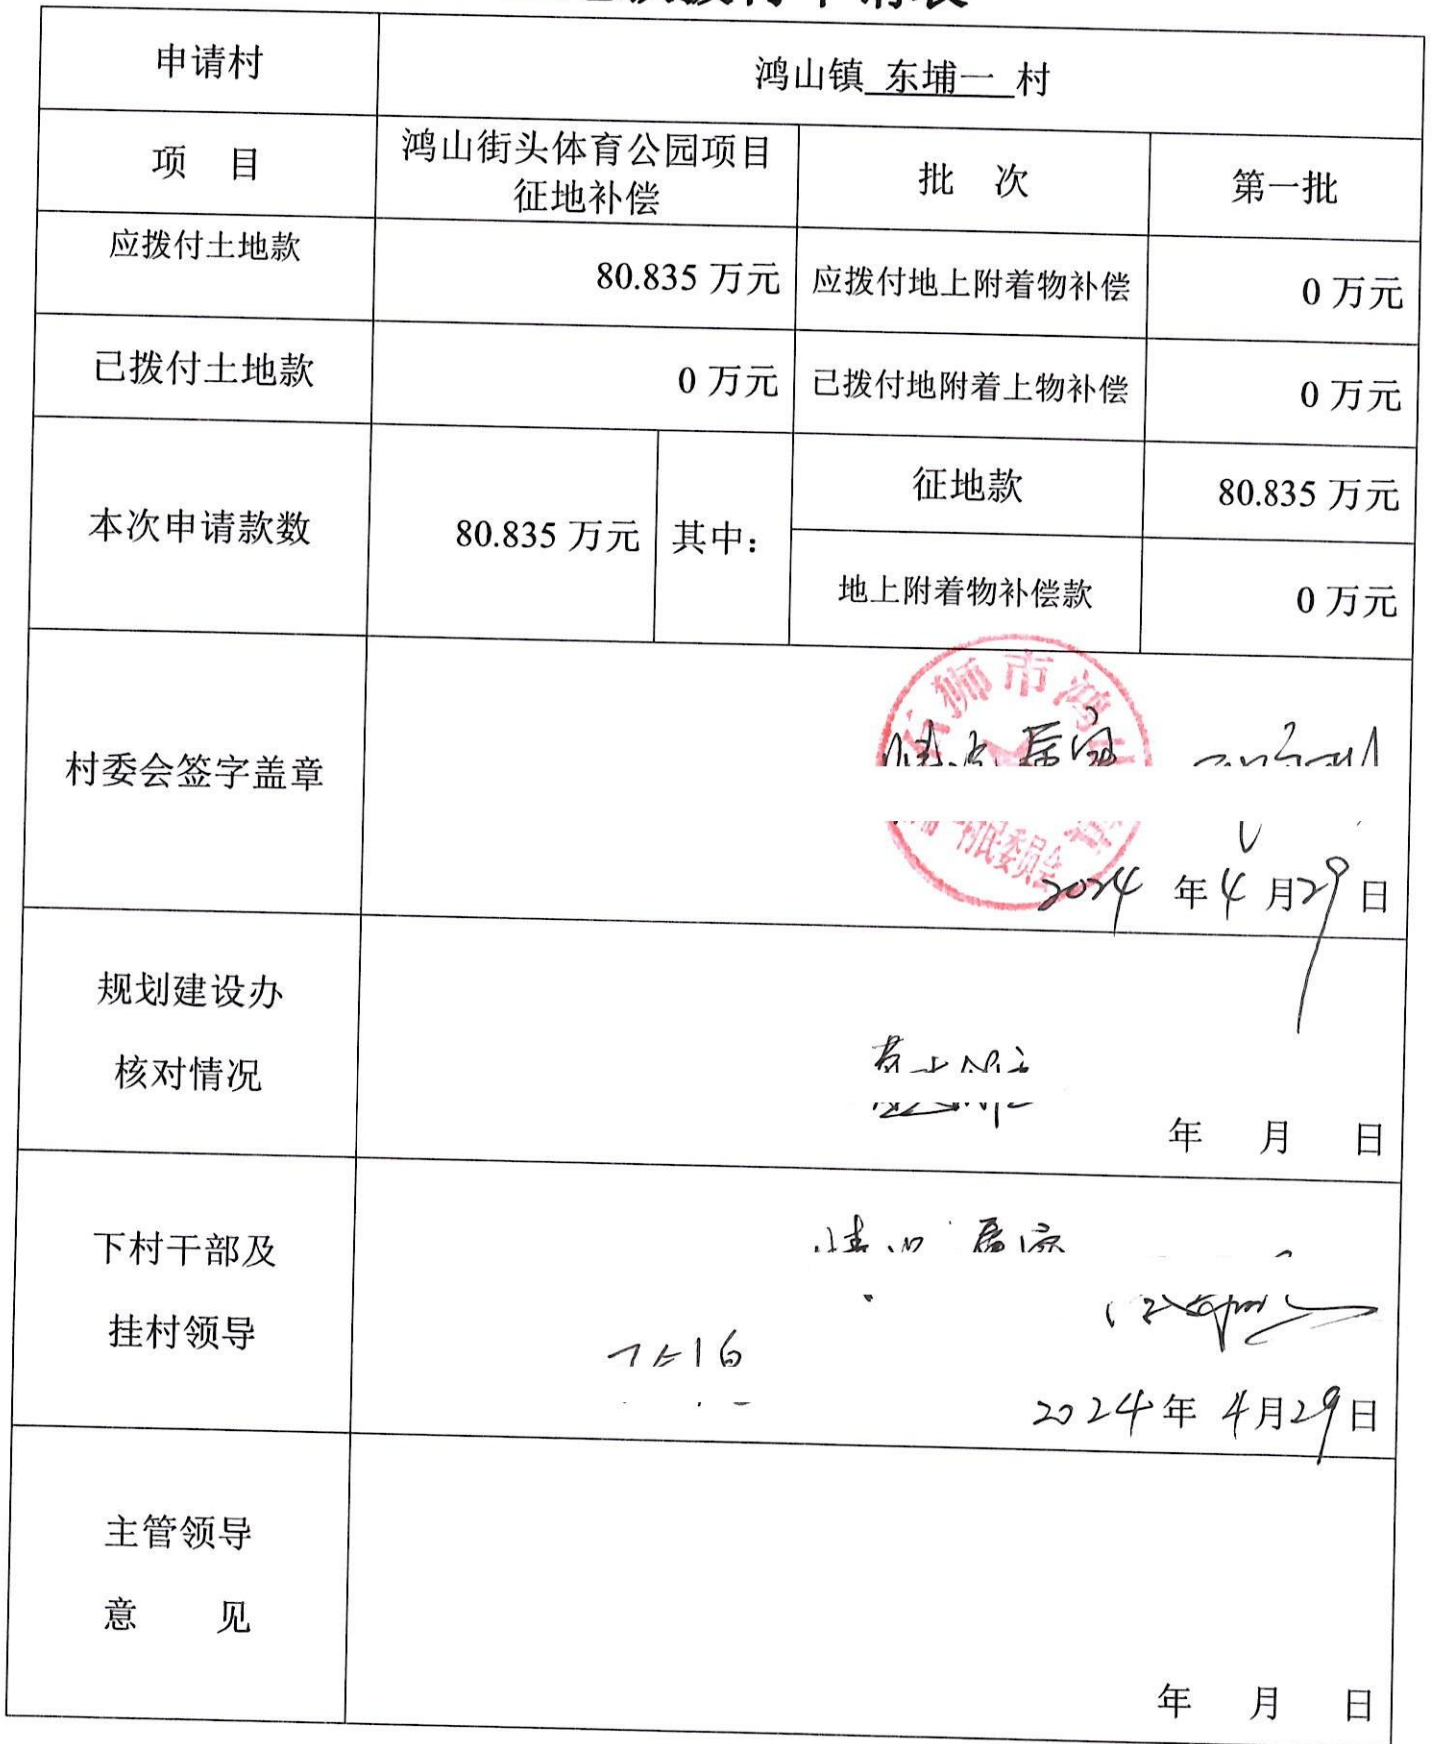 申请村
鸿山镇 东埔一 村
项 目
鸿山街头体育公园项目
征地补偿
批 次
第一批
应拨付土地款
80.835 万元
应拨付地上附着物补偿
0 万元
已拨付土地款
0 万元
已拨付地附着上物补偿
0 万元
本次申请款数
80.835 万元
其中：
征地款
80.835 万元
地上附着物补偿款
0 万元
村委会签字盖章
狮市鸿
村民委员会
2024 年 4 月 29 日
规划建设办
核对情况
年 月 日
下村干部及
挂村领导
2024 年 4 月 29 日
主管领导
意 见
年 月 日